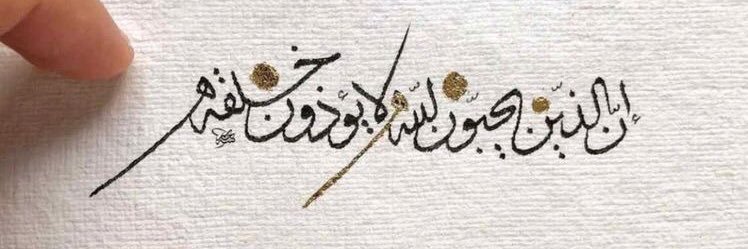 إنّ الذين يحبّون اللّه لا يؤذون خلقه